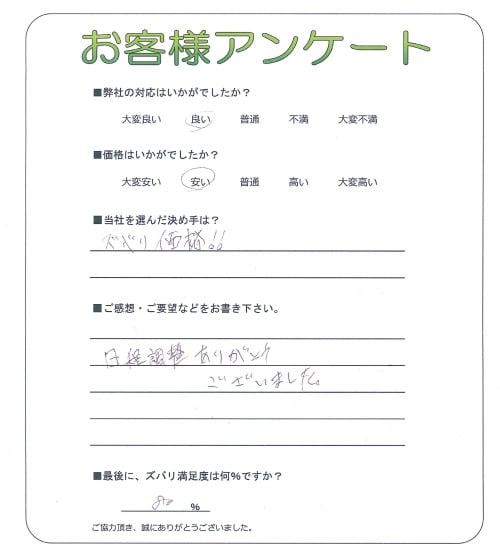 お客様アンケート
■弊社の対応はいかがでしたか？
大変良い 良い 普通 不満 大変不満
■価格はいかがでしたか？
大変安い 安い 普通 高い 大変高い
■当社を選んだ決め手は？
ズバリ価格!!
■ご感想・ご要望などをお書き下さい。
日程調整ありがとう
ございました。
■最後に、ズバリ満足度は何%ですか？
80 %
ご協力頂き、誠にありがとうございました。